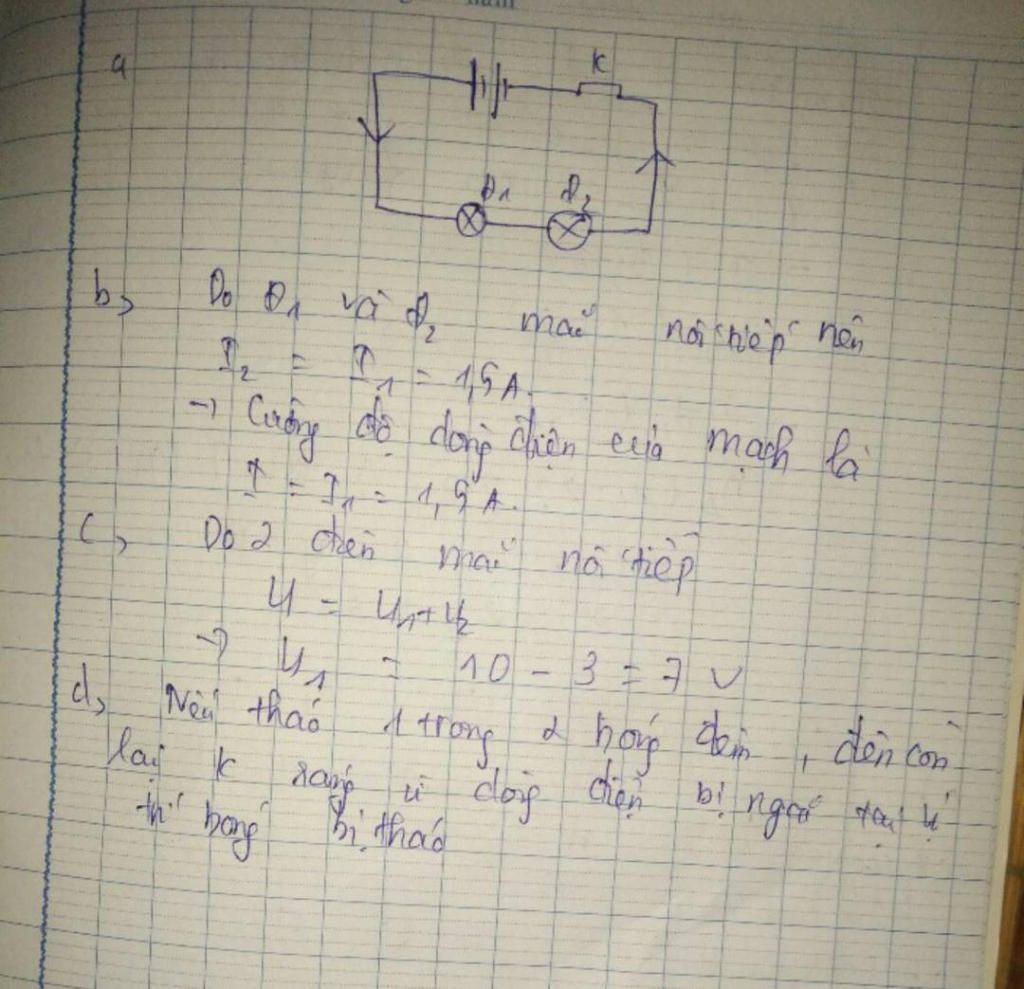 a
K
Đ1 Đ2
b, Do Đ1 và Đ2 mắc nối tiếp nên
I2 = I1 = 1,5A.
→ Cường độ dòng điện của mạch là
I = I1 = 1,5A.
c, Do 2 đèn mắc nối tiếp
U = U1+U2
→ U1 = 10 - 3 = 7 V
d, Nếu tháo 1 trong 2 bóng đèn, đèn còn
lại k sáng vì dòng điện bị ngắt tại vị
trí bóng bị tháo